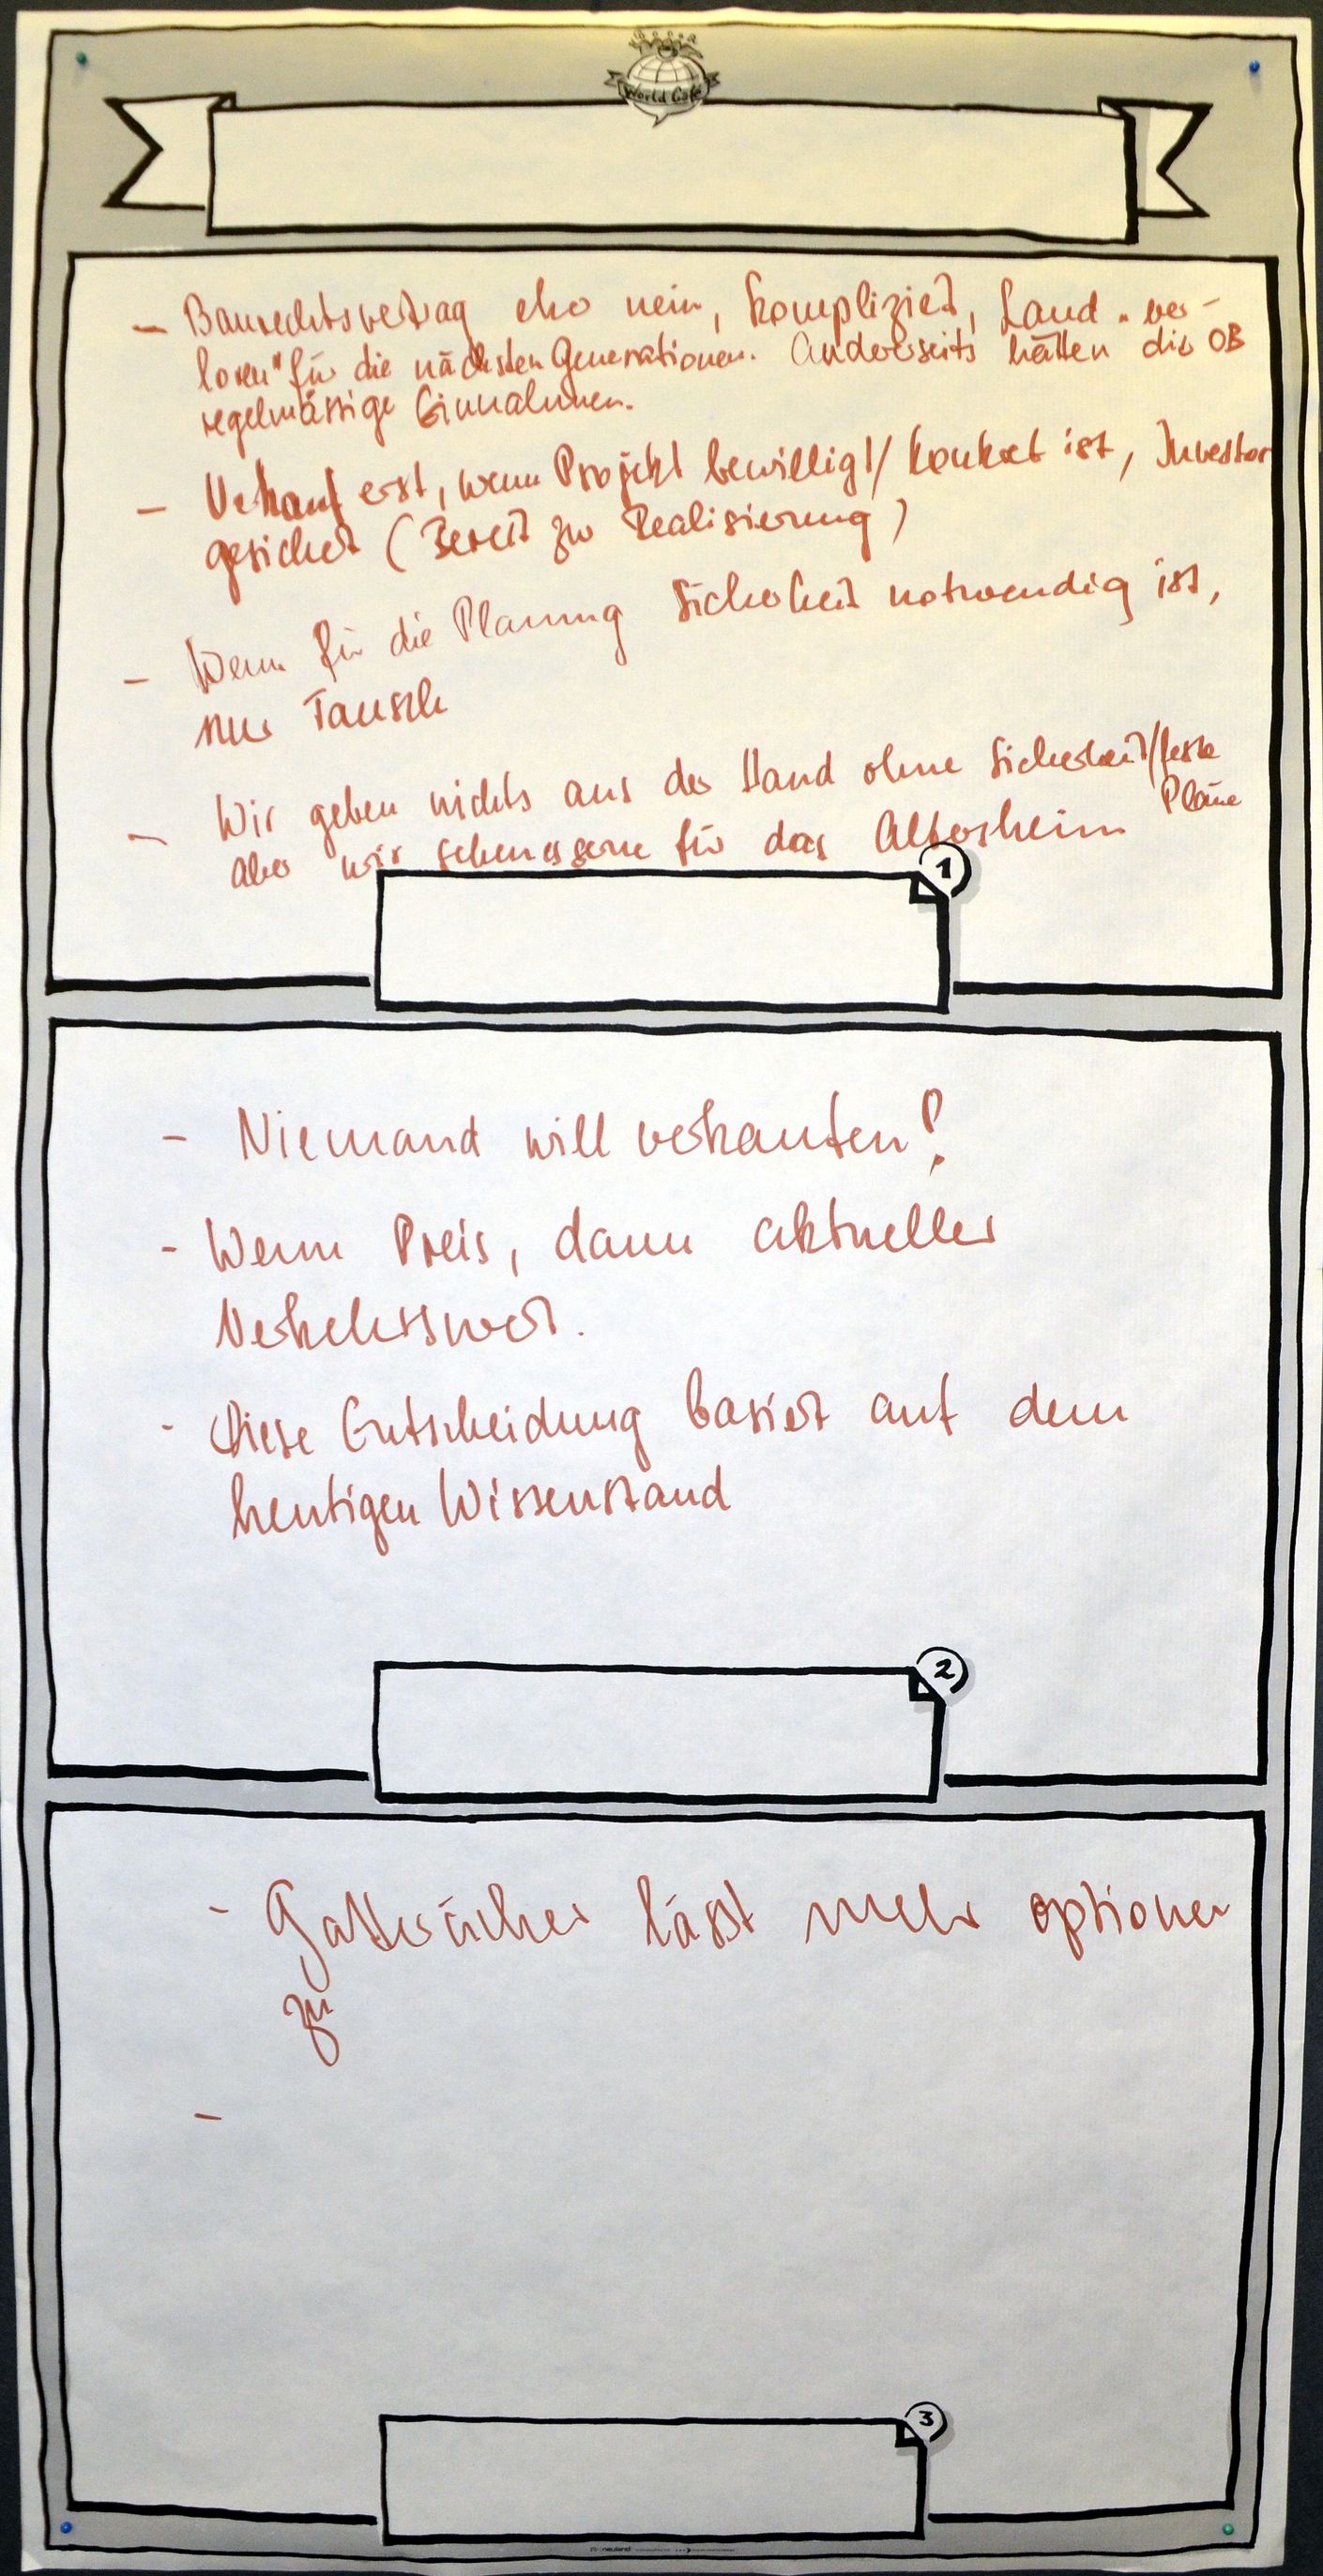 World Café
- Baurechtsvertrag eher nein, kompliziert, Land "ver-
loren" für die nächsten Generationen. Anderseits hätten die OB
regelmässige Einnahmen.
- Verkauf erst, wenn Projekt bewilligt/konkret ist, Investor
gesichert (Bereit zur Realisierung)
- Wenn für die Planung Sicherheit notwendig ist,
nur Tausch
- Wir geben nichts aus der Hand ohne Sicherheit/feste
Pläne
aber wir geben es gerne für das Altersheim
1
- Niemand will verkaufen!
- Wenn Preis, dann aktueller
Verkehrswert.
- Diese Entscheidung basiert auf dem
heutigen Wissenstand
2
- Gatteräcker lässt mehr optionen
zu
-
3
neuland